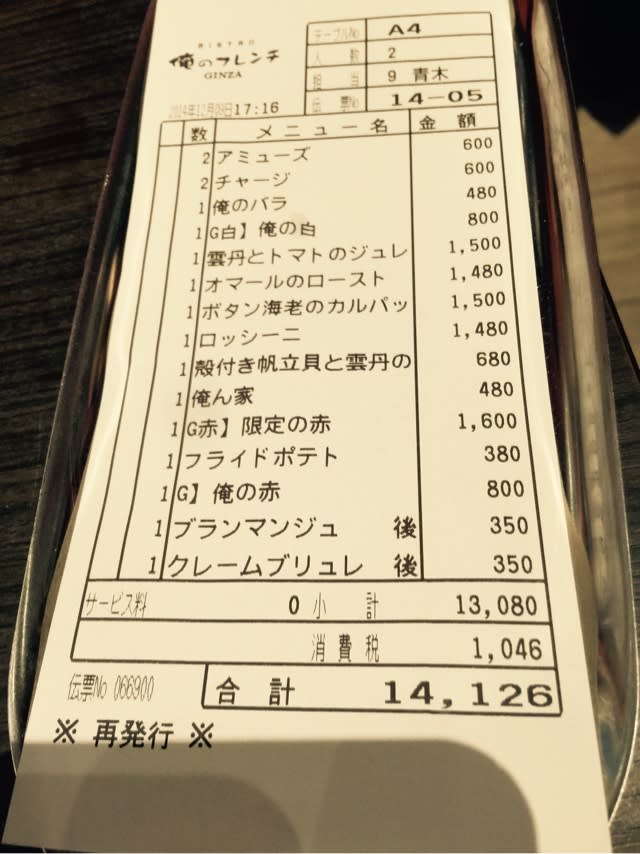 BISTRO
俺のフレンチ
GINZA
テーブルNo A4
人数 2
担当 9 青木
2014年12月09日17:16 伝票No 14-05
数 メニュー名 金額
2 アミューズ 600
2 チャージ 600
1 俺のバラ 480
1 G白】俺の白 800
1 雲丹とトマトのジュレ 1,500
1 オマールのロースト 1,480
1 ボタン海老のカルパッ 1,500
1 ロッシーニ 1,480
1 殻付き帆立貝と雲丹の 680
1 俺ん家 480
1 G赤】限定の赤 1,600
1 フライドポテト 380
1 G】俺の赤 800
1 ブランマンジュ 後 350
1 クレームブリュレ 後 350
サービス料 0 小計 13,080
消費税 1,046
伝票No 066900 合計 14,126
※ 再発行 ※